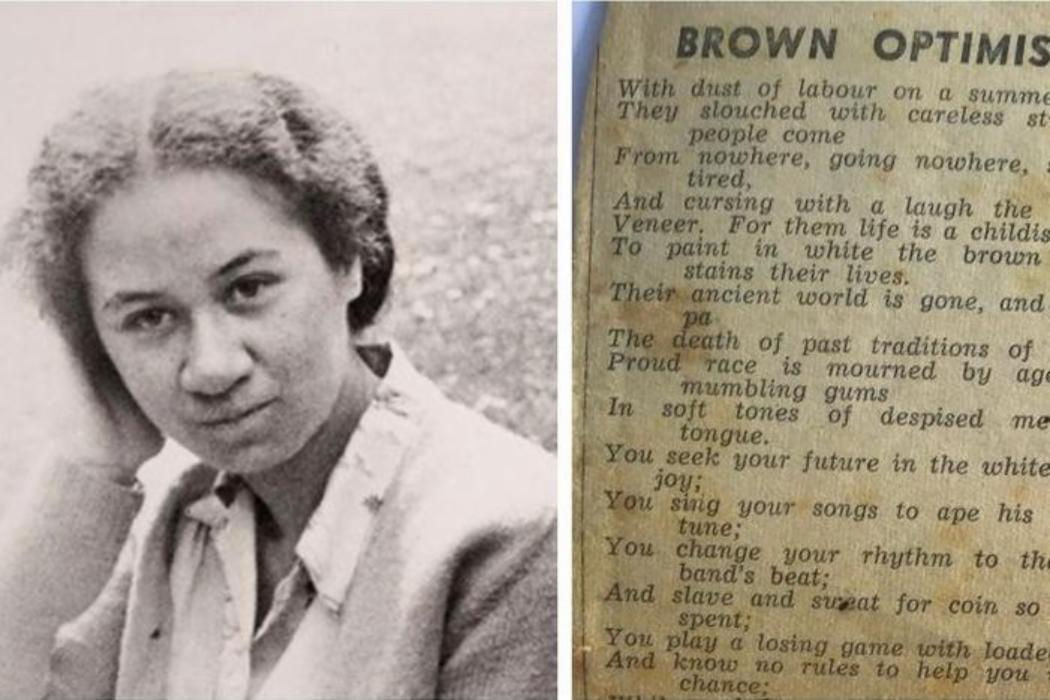 BROWN OPTIMIS
With dust of labour on a summe
They slouched with careless st
people come
From nowhere, going nowhere, s
tired,
And cursing with a laugh the
Veneer. For them life is a childis
To paint in white the brown
stains their lives.
Their ancient world is gone, and
pa
The death of past traditions of
Proud race is mourned by age
mumbling gums
In soft tones of despised me
tongue.
You seek your future in the white
joy;
You sing your songs to ape his
tune;
You change your rhythm to the
band's beat;
And slave and sweat for coin so
spent;
You play a losing game with loade
And know no rules to help you
chance;